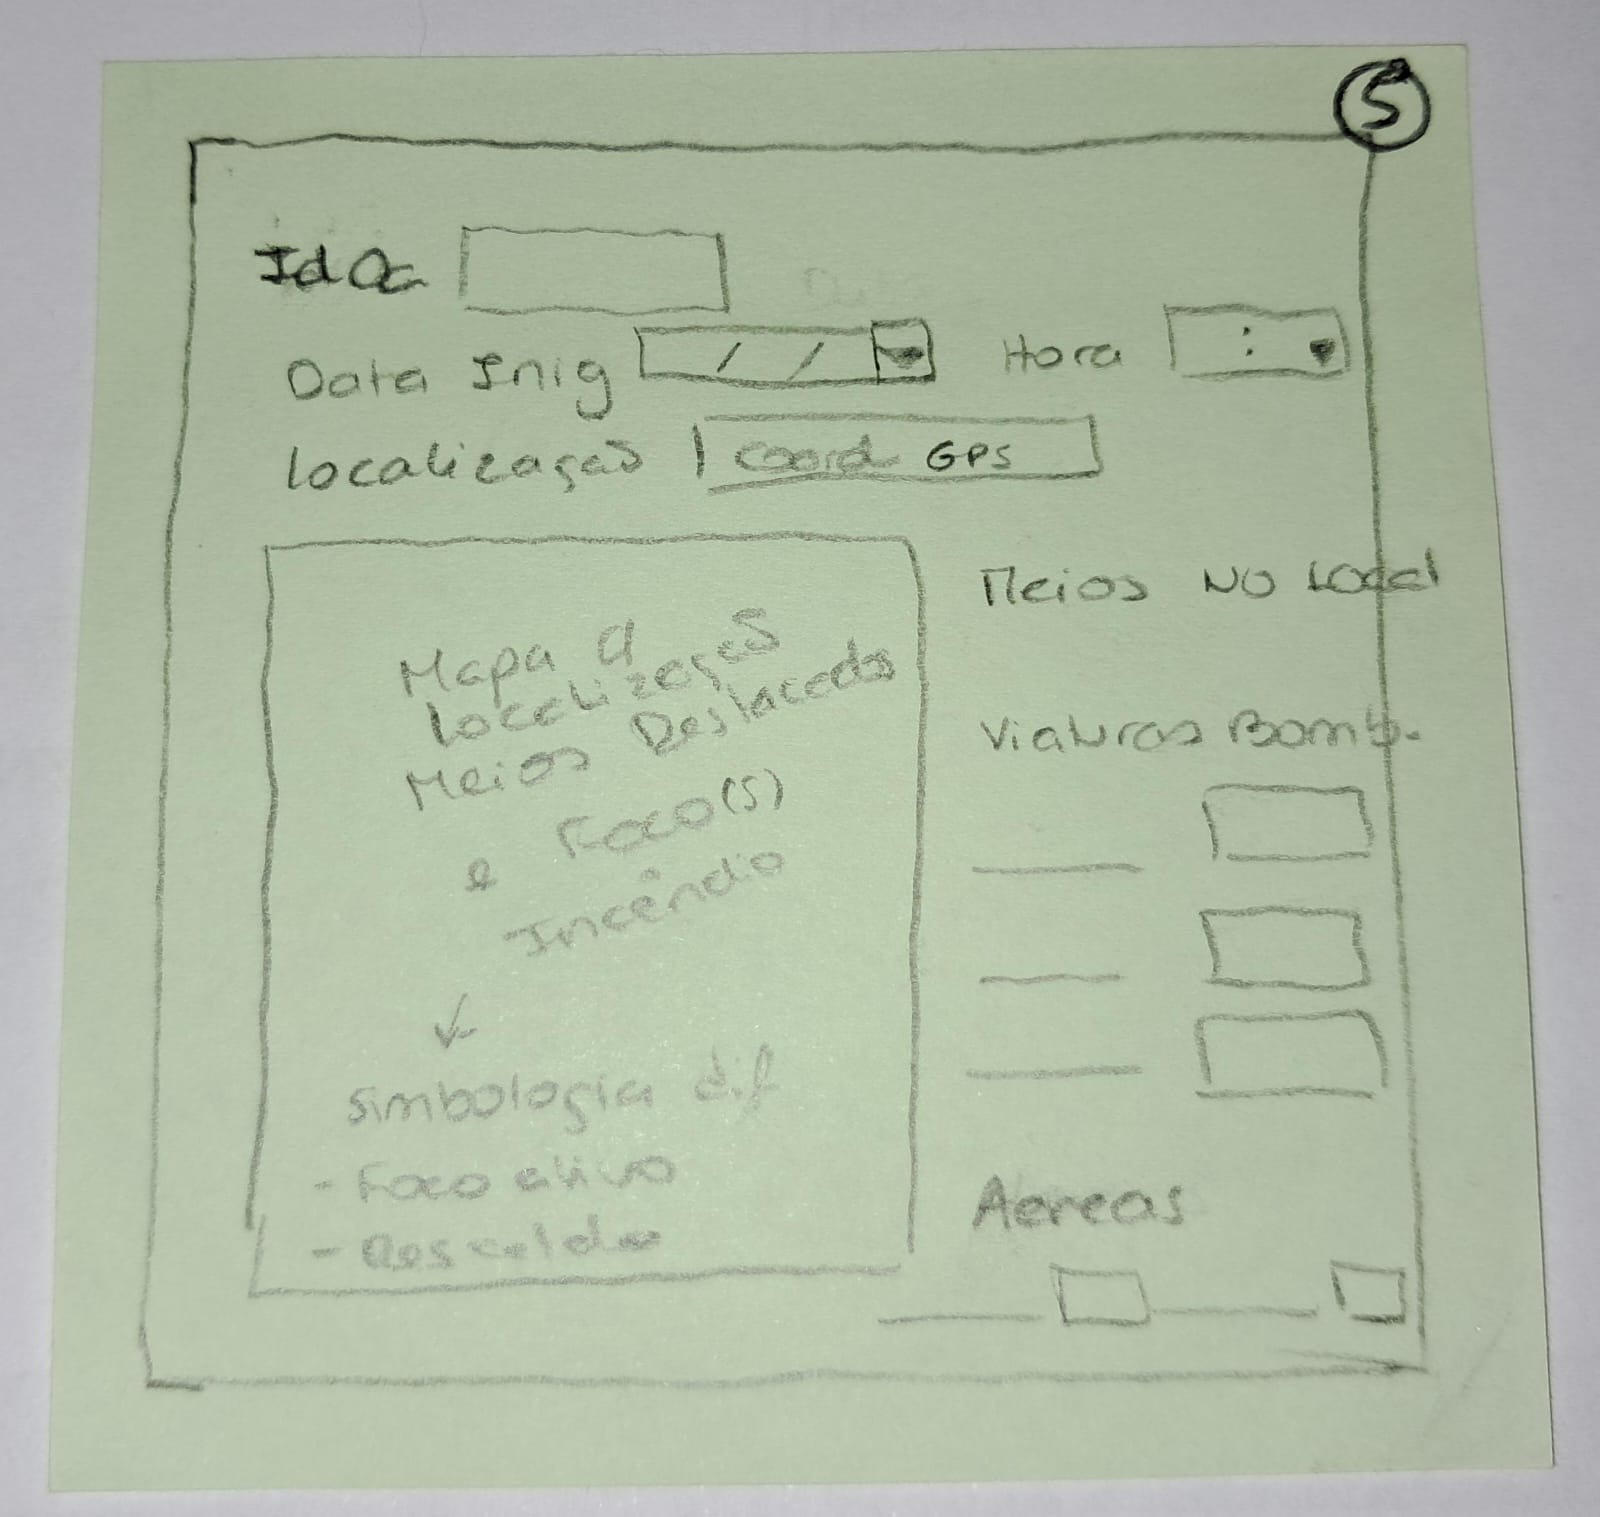 5
Id Oc
Data Inig / /
Hora :
Localização Coord GPS
Mapa c/
Localização
Meios Deslocados
e Foco(s)
Incêndio
Simbologia dif
- Foco ativo
- Rescaldo
Meios NO Local
Viaturas Bomb.
Aereas